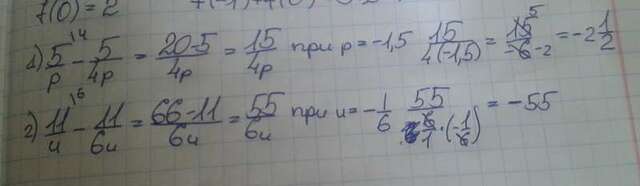 f(0) = 2
2) 5/p \4 - 5/4p = 20-5/4p = 15/4p при p = -1,5 15/4(-1,5) = 15 5/-6 -2 = -2 1/2
2) 11/u \6 - 11/6u = 66-11/6u = 55/6u при u = -1/6 55/6/1·(-1/6) = -55